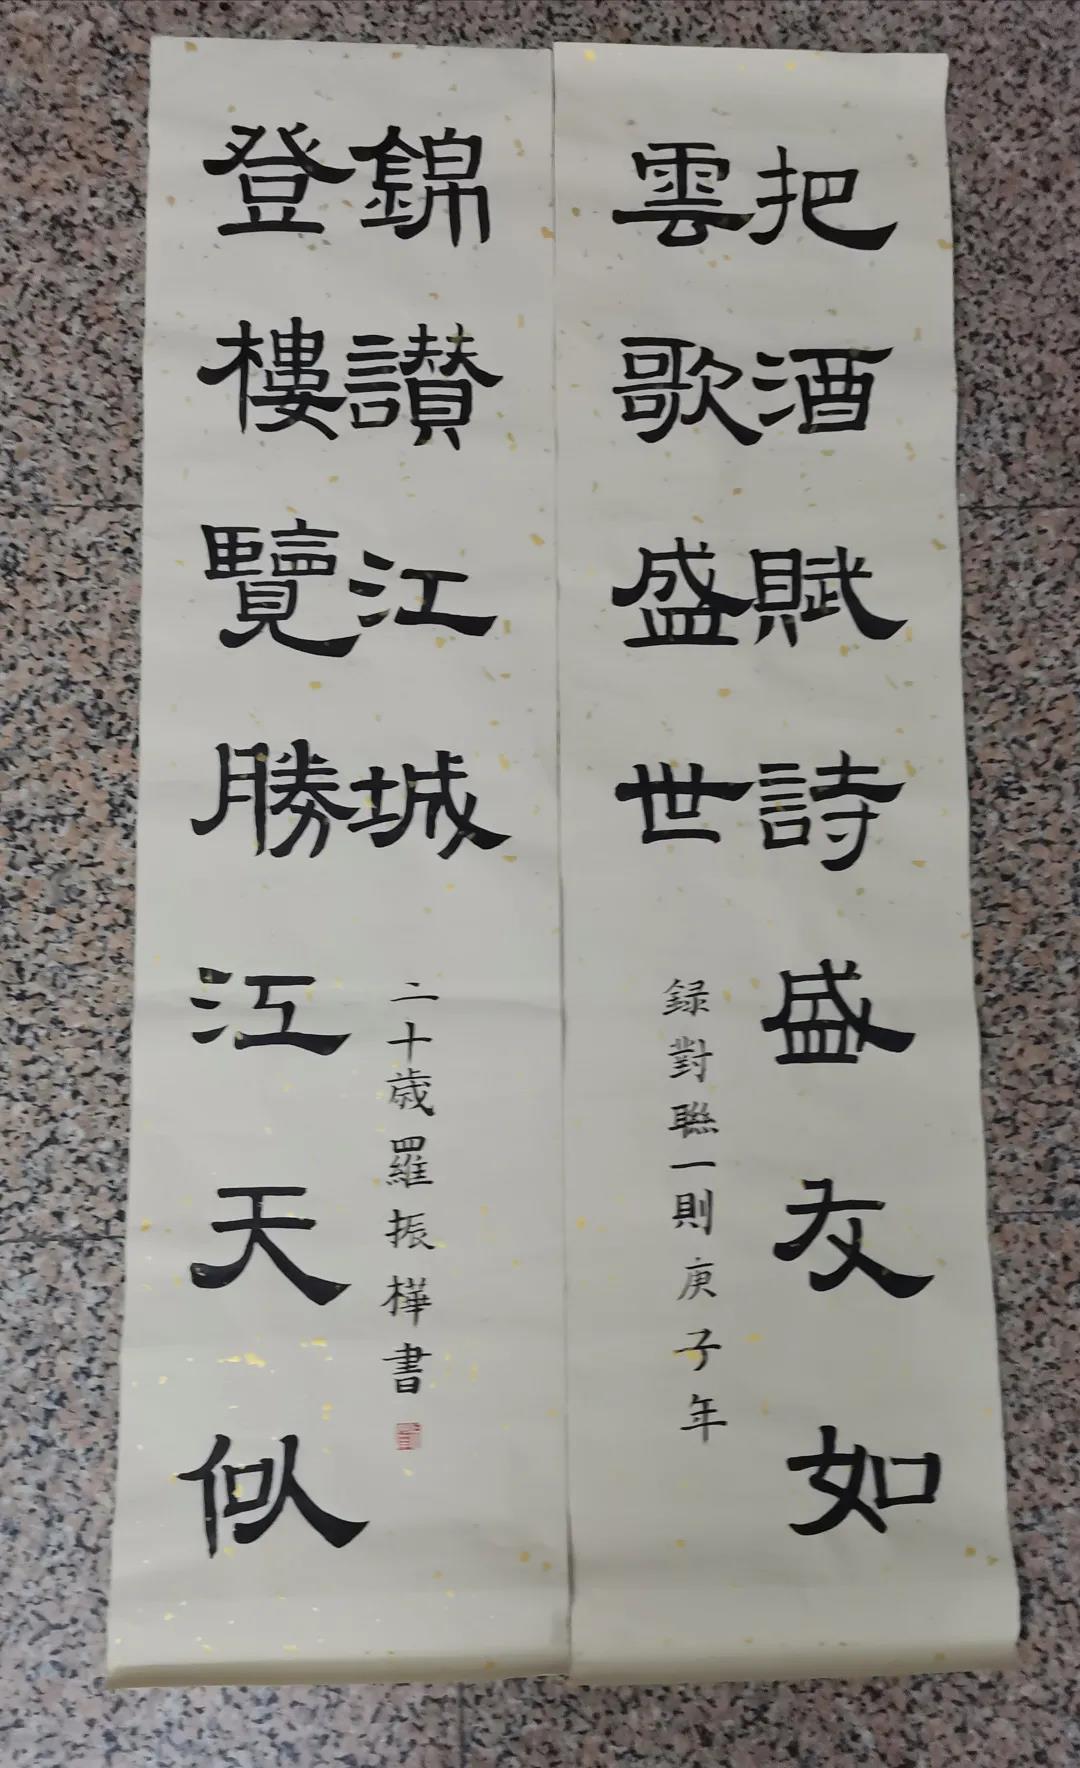 把酒賦詩盛友如
雲歌盛世
録對聯一則庚子年
錦讃江城
登樓覽勝江天似
二十歲羅振樺書